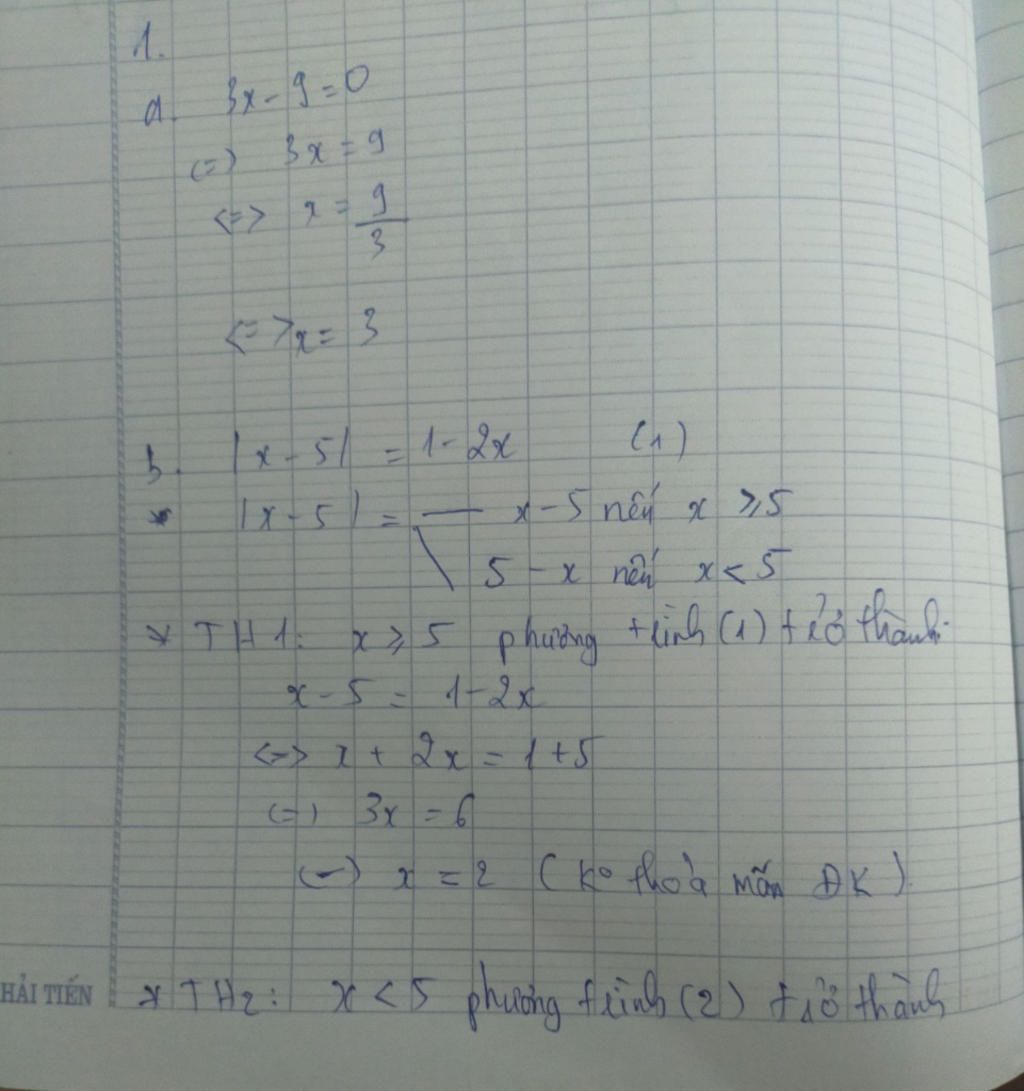 1.
a. 3x - 9 = 0
(=) 3x = 9
<=> x = 9/3
<=> x = 3
b. |x - 5| = 1 - 2x (1)
* |x - 5| = x - 5 nếu x ≥ 5
5 - x nếu x < 5
* TH1: x ≥ 5 phương trình (1) trở thành
x - 5 = 1 - 2x
<=> x + 2x = 1 + 5
(=) 3x = 6
(=) x = 2 (K° thỏa mãn ĐK)
HẢI TIẾN
* TH2: x < 5 phương trình (2) trở thành